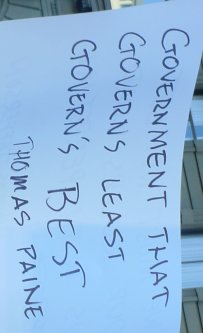 GOVERNMENT THAT
GOVERNS LEAST
GOVERN'S BEST
THOMAS PAINE